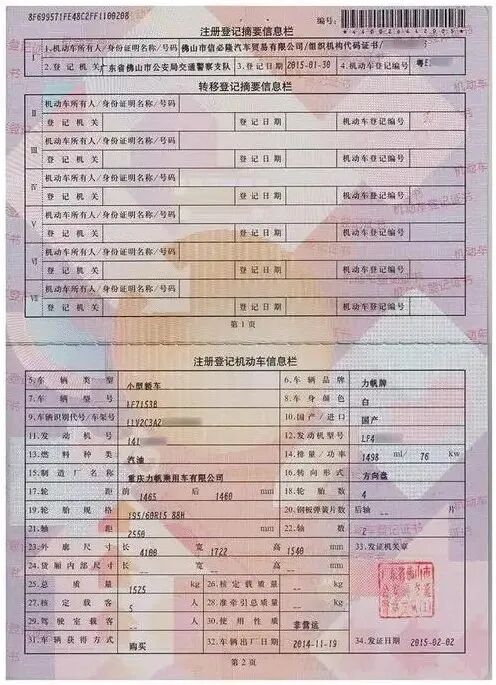 8F699571FE48C2FF1100208
注册登记摘要信息栏
编号:
I 1.机动车所有人/身份证明名称/号码 佛山市信必隆汽车贸易有限公司/组织机构代码证书/
2.登记机关 广东省佛山市公安局交通警察支队 3.登记日期 2015-01-30 4.机动车登记编号 粤E
转移登记摘要信息栏
II 机动车所有人/身份证明名称/号码
登记机关 登记日期 机动车登记编号
III 机动车所有人/身份证明名称/号码
登记机关 登记日期 机动车登记编号
IV 机动车所有人/身份证明名称/号码
登记机关 登记日期 机动车登记编号
V 机动车所有人/身份证明名称/号码
登记机关 登记日期 机动车登记编号
VI 机动车所有人/身份证明名称/号码
登记机关 登记日期 机动车登记编号
VII 机动车所有人/身份证明名称/号码
登记机关 登记日期 机动车登记编号
第1页
注册登记机动车信息栏
5.车辆类型 小型轿车 6.车辆品牌 力帆牌
7.车辆型号 LF7153B 8.车身颜色 白
9.车辆识别代号/车架号 LLV2C3A2 10.国产/进口 国产
11.发动机号 141 12.发动机型号 LF4
13.燃料种类 汽油 14.排量/功率 1498 ml/ 76 kw
15.制造厂名称 重庆力帆乘用车有限公司 16.转向形式 方向盘
17.轮距 前 1465 后 1460 mm 18.轮胎数 4
19.轮胎规格 195/60R15 88H 20.钢板弹簧片数 后轴 -- 片
21.轴距 2550 mm 22.轴数 2
23.外廓尺寸 长 4100 宽 1722 高 1540 mm 33.发证机关章
24.货厢内部尺寸 长 -- 宽 -- 高 -- mm
25.总质量 1525 kg 26.核定载质量 -- kg
27.核定载客 5 人 28.准牵引总质量 -- kg
29.驾驶室载客 -- 人 30.使用性质 非营运
31.车辆获得方式 购买 32.车辆出厂日期 2014-11-19 34.发证日期 2015-02-02
第2页